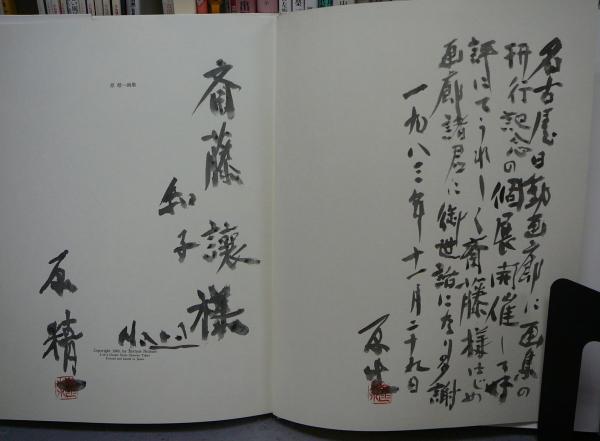 名古屋日動画廊に画集の
刊行記念の個展開催して好
評にてうれしく斎藤様はじめ
画廊諸君に御世話になり多謝
一九八三年十一月二十九日
原精一
斎藤讓様
和子
原 精一画集
原精一
Printed and bound in Japan